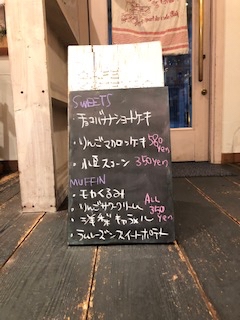 SWEETS
・チョコバナナショートケーキ
・りんごマカロッケーキ 580 yen
・小豆スコーン 350yen
MUFFIN
・モカくるみ
・りんごサワークリーム ALL 350 yen
・洋梨キャラメル
・ラムレーズンスイートポテト